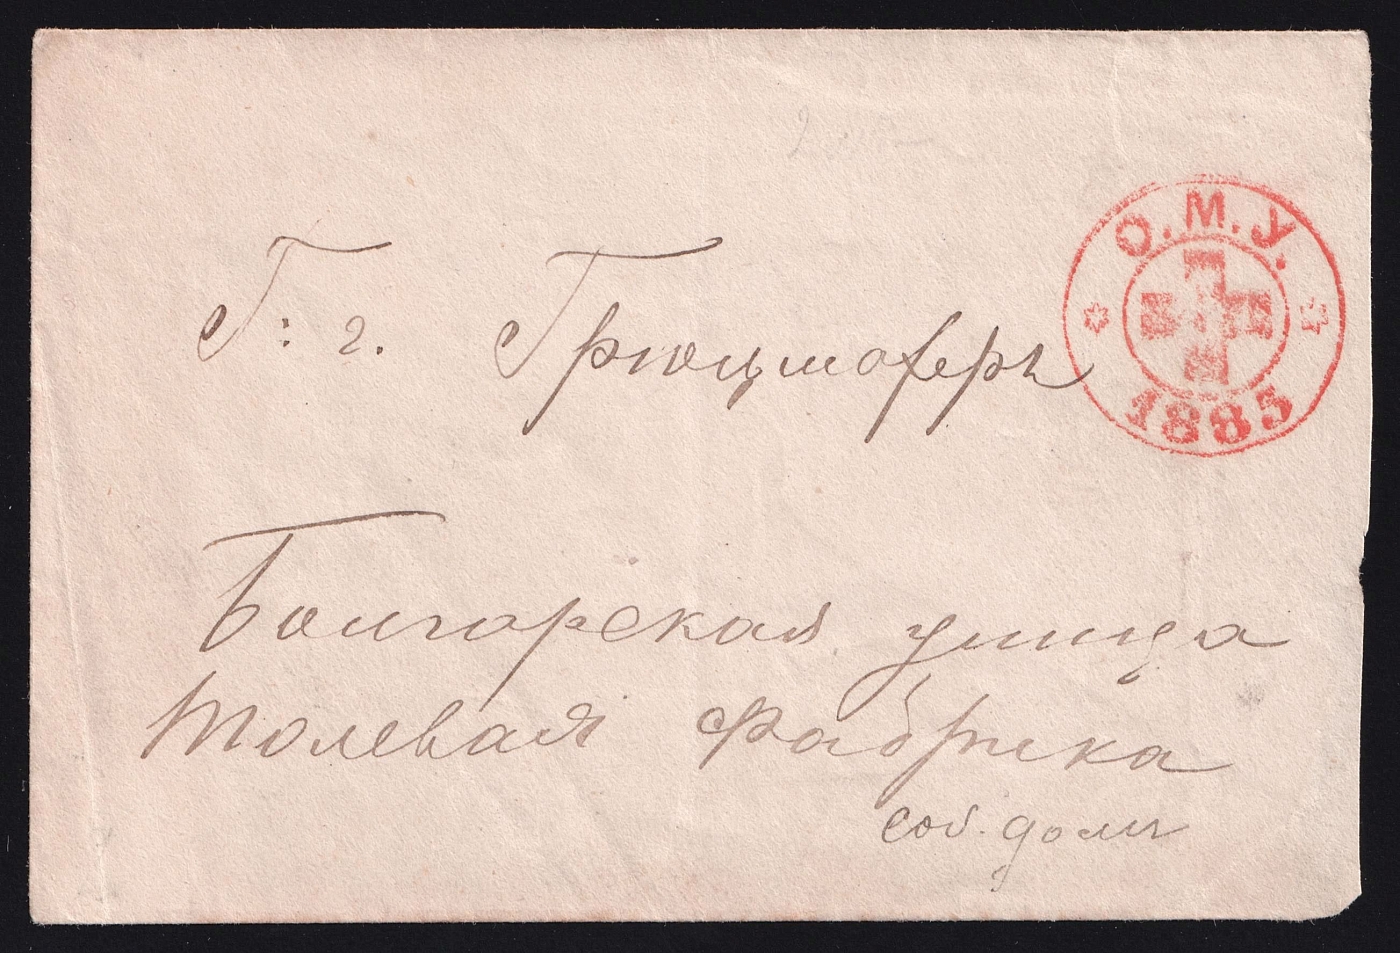 О.М.У.
1885
Г: г. Грюцмахеръ
Болгарская улица
Толевая Фабрика
соб. домъ